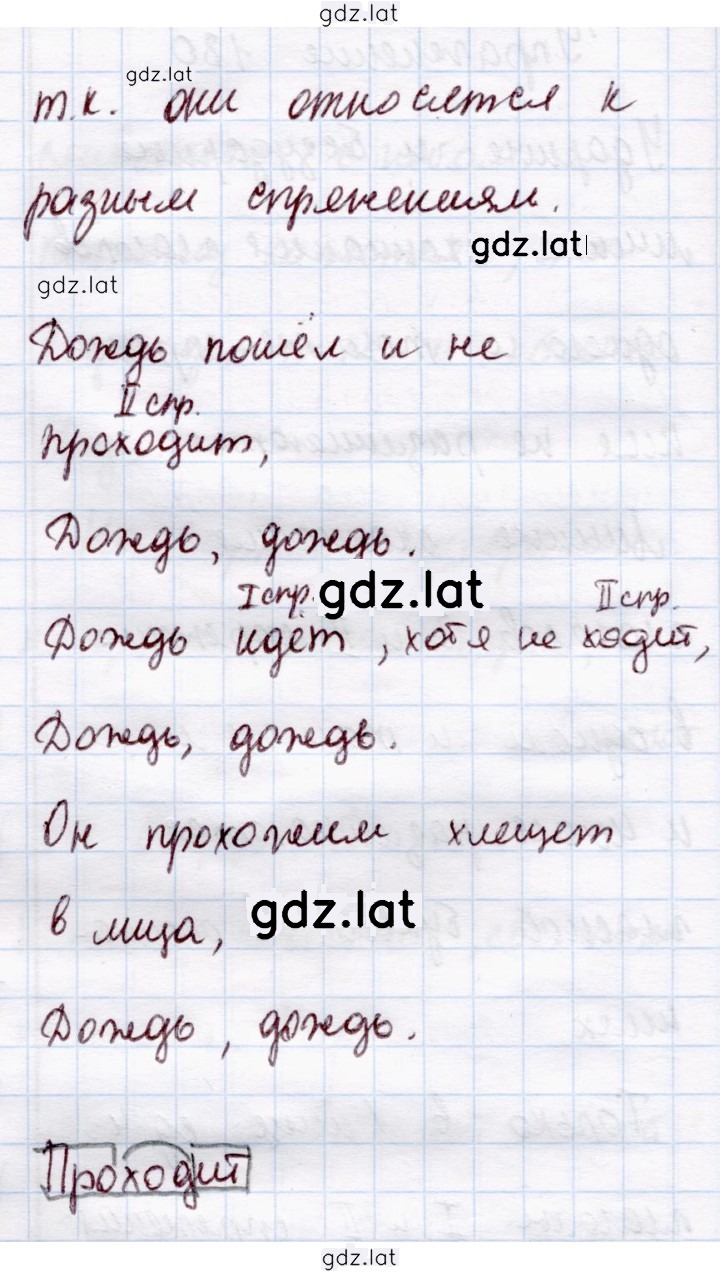 gdz.lat
gdz.lat
т.к. они относятся к
разным спряжениям.
gdz.lat
gdz.lat
Дождь пошёл и не
II спр.
проходит,
Дождь, дождь.
I спр. gdz.lat II спр.
Дождь идёт, хотя не ходит,
Дождь, дождь.
Он прохожим хлещет
в лица, gdz.lat
Дождь, дождь.
Проходит
gdz.lat